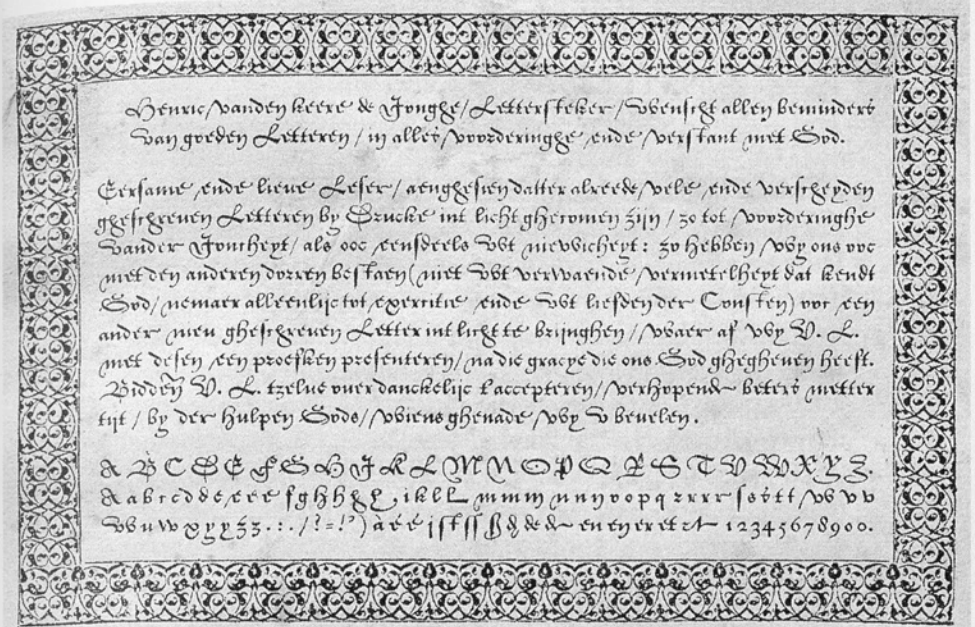 Henric vanden keere de Jonghe / Lettersteker / Wenscht allen beminders
van goeden Letteren / in alles voorderinghe ende verstant met God.
Eersame ende lieve Leser / aenghesien datter alreede vele ende verscheyden
gheschreven Letteren by Drucke int licht ghecomen zijn / zo tot voorderinghe
vander Joncheyt / als ooc eensdeels Wt nieuwicheyt : zo hebben wy ons ooc
met den anderen dorren bestaen (niet Wt verwaende vermetelheyt dat kendt
God / nemaer alleenlijc tot exercitie ende Wt liefden der Consten) ooc een
ander nieu gheschreven Letter int licht te brijnghen / waer af wy V. L.
met desen een proefken presenteren / na die gracye die ons God ghegheven heeft.
Bidden V. L. tzelve over danckelijc t'accepteren / verhopende beters metter
tijt / by der hulpen Gods / wiens ghenade wy v bevelen.
A B C D E F G H J K L M N O P Q R S T V W X Y Z.
a a b c c d d e e e e f g h h i k l l m m m n n n o o p q r r r r s s t t v v v
w u w x y y z z . : . / ? = ! ) a e e j st ss de de en en er et 1 2 3 4 5 6 7 8 9 0 0.